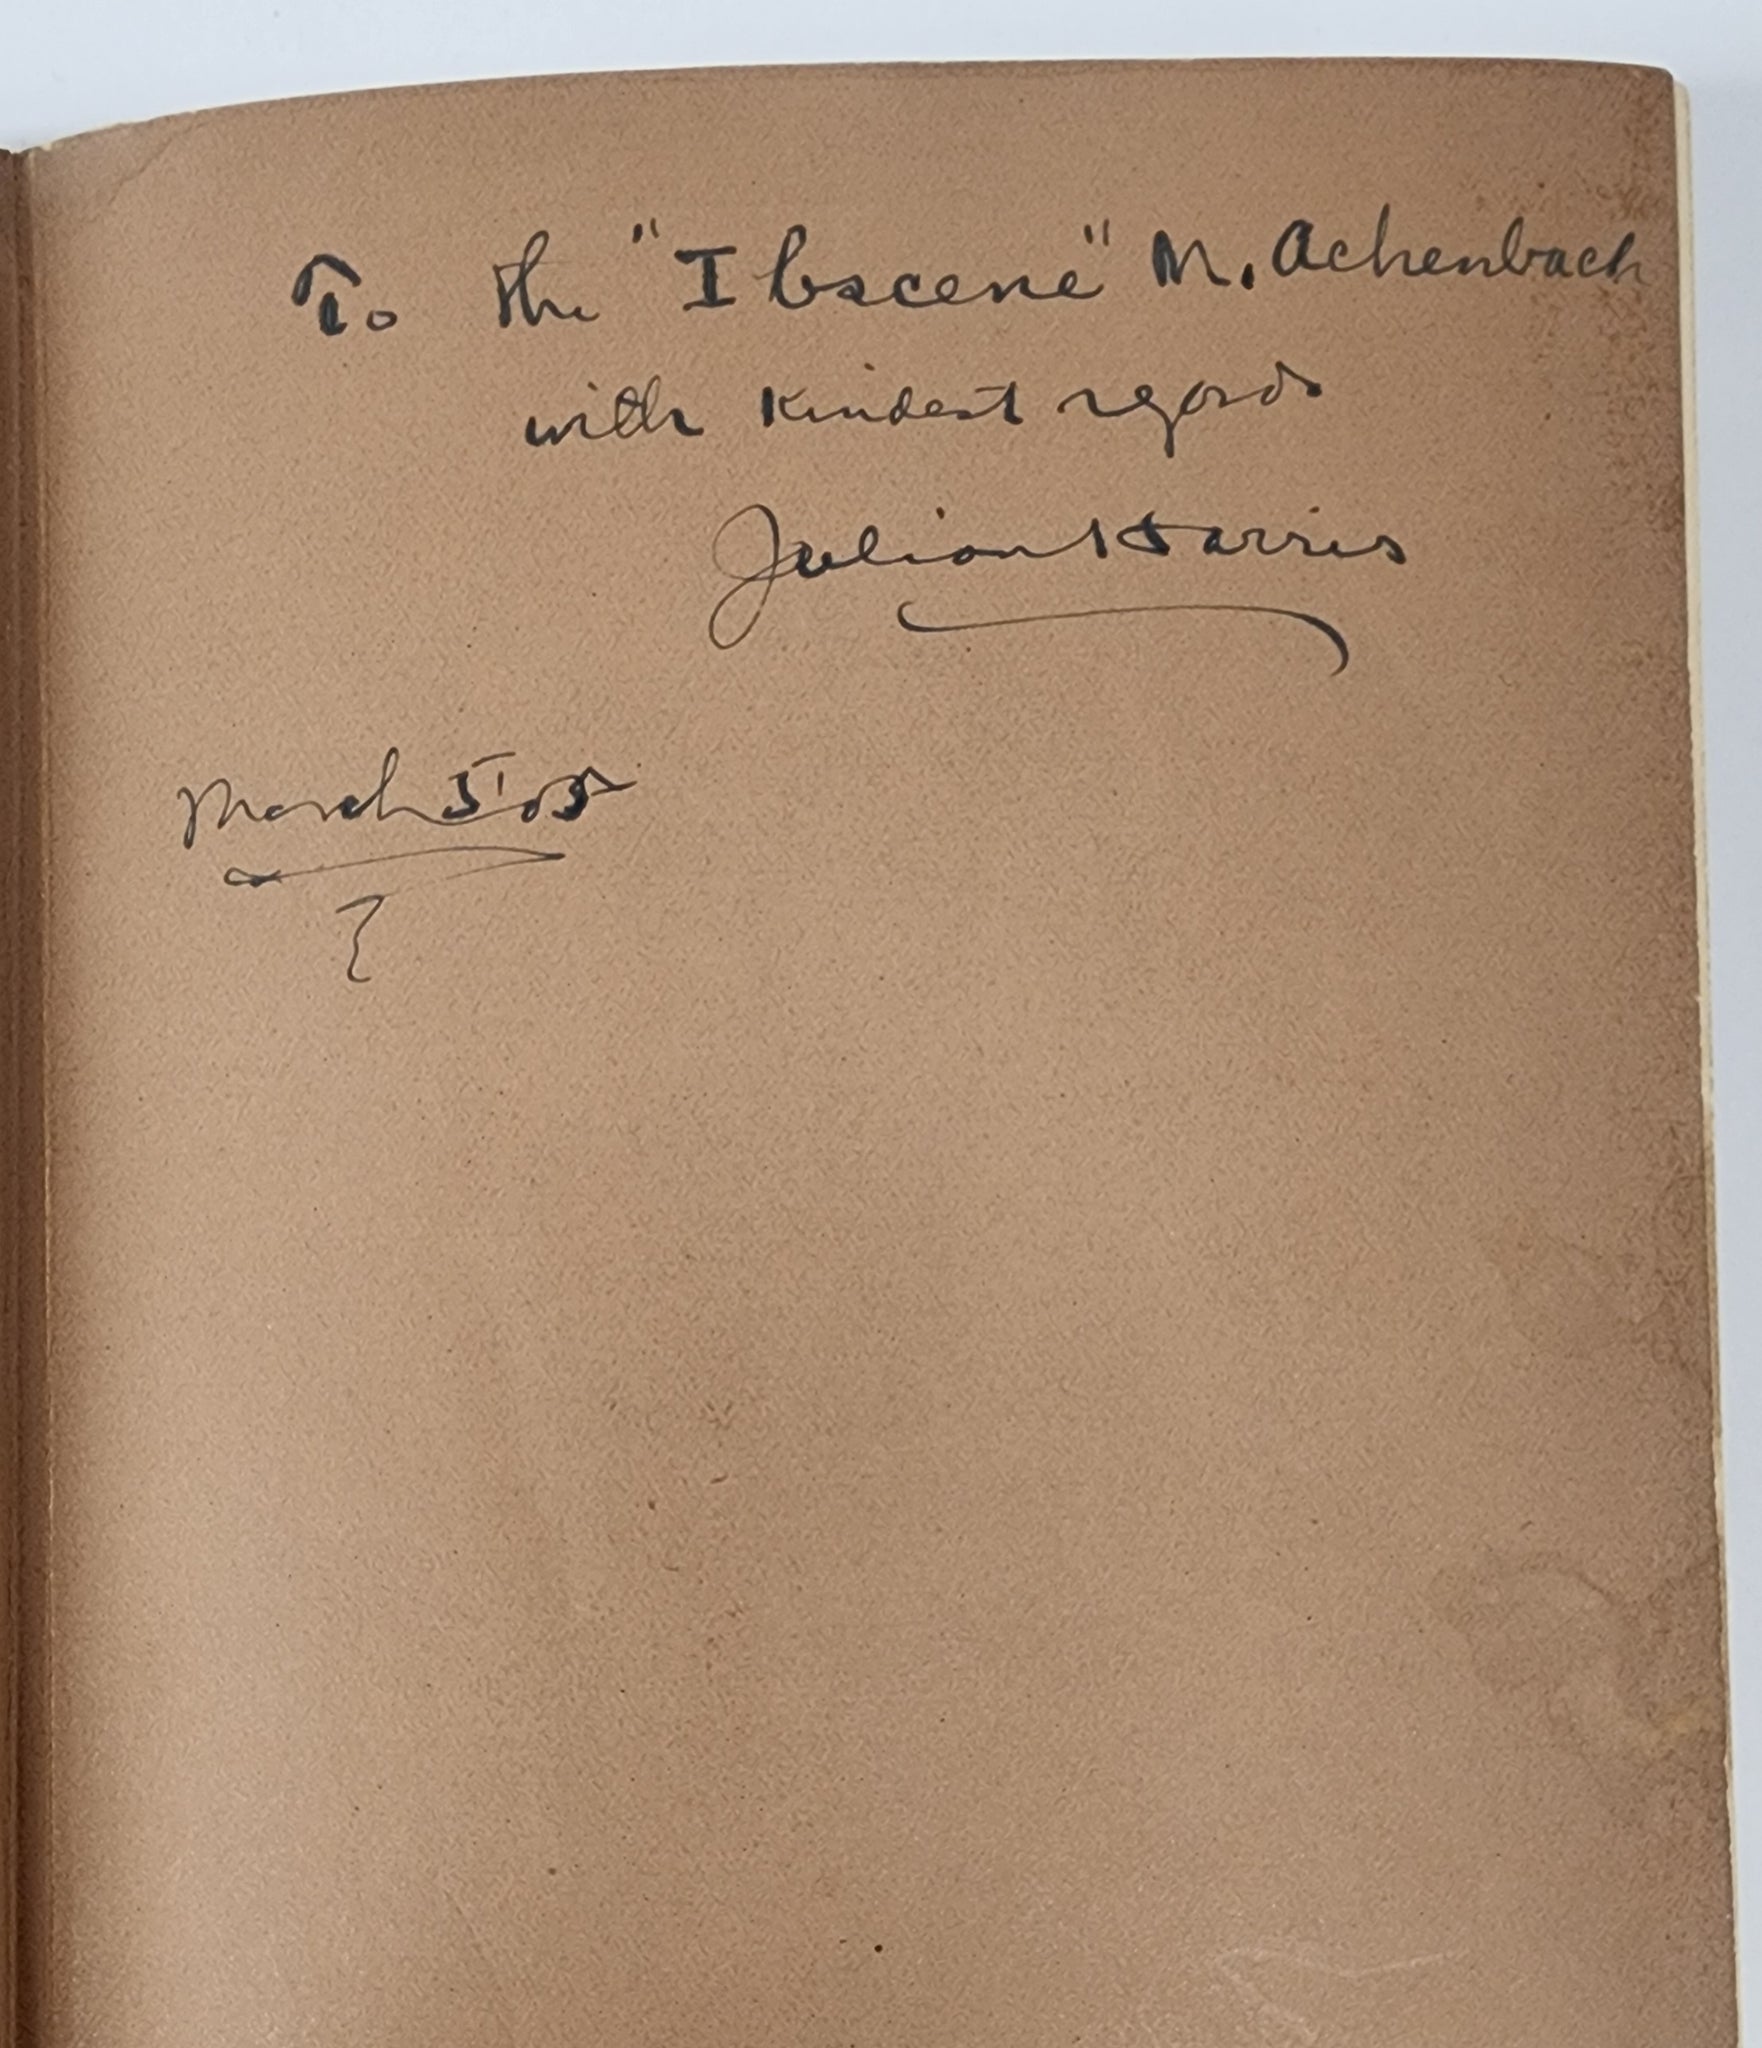 To the "Ibscene" M. Achenbach
with kindest regards
Julian Harris
March 5, '05